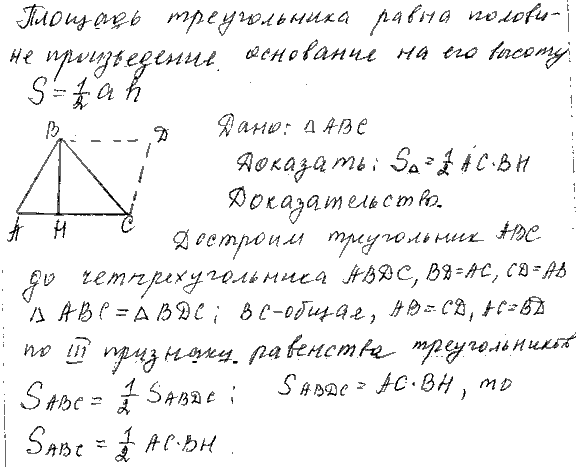 Площадь треугольника равна полови-
не произведение основание на его высоту
S = 1/2 a h
B D
A H C
Дано: △ABC
Доказать: S△ = 1/2 AC·BH
Доказательство.
Достроим треугольник ABC
до четырехугольника ABDC, BD=AC, CD=AB
△ ABC = △ BDC; BC-общая, AB=CD, AC=BD
по III признаки равенства треугольников
SABC = 1/2 SABDC; SABDC = AC·BH, то
SABC = 1/2 AC·BH.